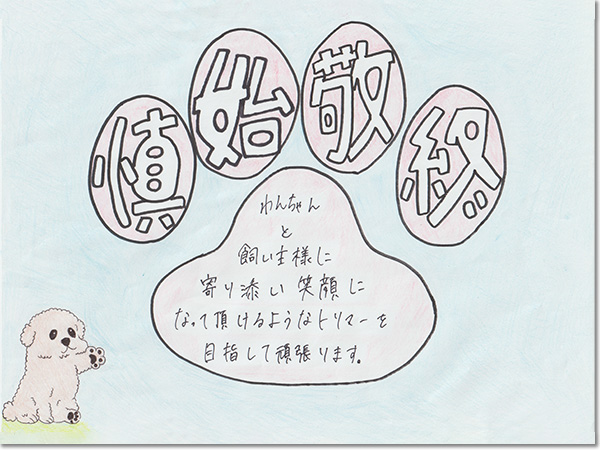 慎始敬終
わんちゃん
と
飼い主様に
寄り添い笑顔に
なって頂けるようなトリマーを
目指して頑張ります。